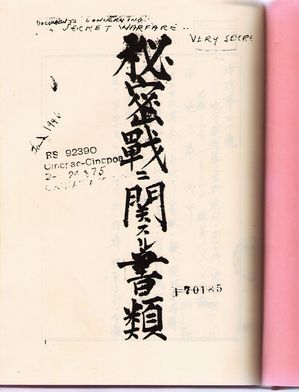 DOCUMENTS CONCERNING
"SECRET WARFARE"
VERY SECRE
秘密戰ニ関スル書類
RS 92390
Cincpac-Cincpoa
70185